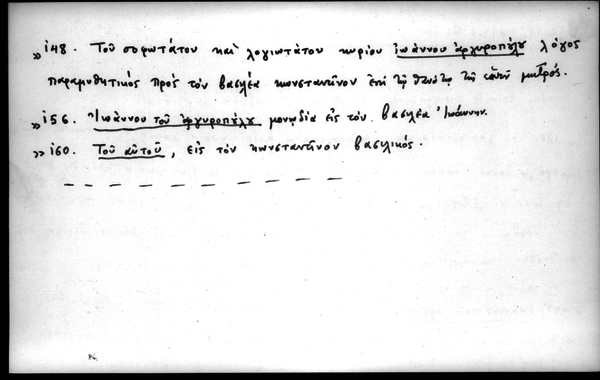 »148. Τοῦ σοφωτάτου καὶ λογιωτάτου κυρίου Ἰωάννου Ἀργυροπούλου λόγος
παραμυθητικὸς πρὸς τὸν βασιλέα Κωνσταντῖνον ἐπὶ τῇ θανῇ τῆς μητρός.
»156. Ἰωάννου τοῦ Ἀργυροπούλου μονῳδία εἰς τὸν βασιλέα Ἰωάννην.
»160. Τοῦ αὐτοῦ, εἰς τὸν Κωνσταντῖνον βασιλικός.